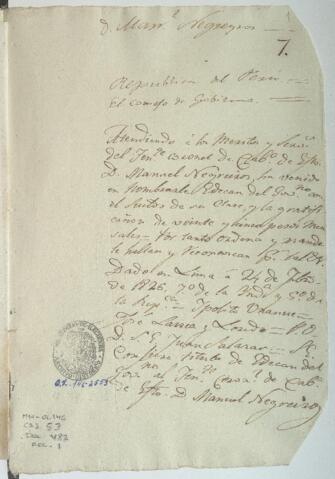 D. Man.l Negreyros
7.
Republica del Peru
El consejo de Gobierno.
Atendiendo à los Meritos y Serv.s
del Ten.te coronel de Cab.a de Ex.to
D. Manuel Negreiros, ha venido
en Nombrarle Edecan del Gov.no con
el sueldo de su Clase, y la gratifi
cacion de veinte y cinco pesos men
suales - Por tanto ordena y manda
le hallan y reconoscan p.r tal
Dado en Lima à 24 de
de 1826, 7o de la Ind.a y 5o de la
Rep.ca - Ypolito Vnanue
José Larrea y Loredo - P. O.
D. S. E. Juan Salazar
Confiere titulo de Edecan del
Gov.no al Ten.te Coron.l de Cab.a
de Ex.to D. Manuel Negreiros
MH-OL 146
CAJ. 53
Doc. 482
FOL. 1